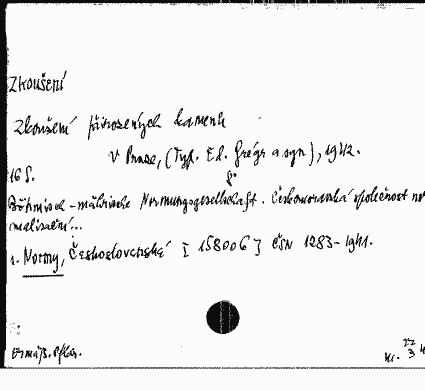 Zkoušení
Zkoušení přirozených kamenů
v Praze, (Typ. Ed. Grégr a syn), 1942.
8°
16 S.
Böhmisch-mährische Normungsgesellschaft. Českomoravská společnost nor
malisační...
1. Normy, Československé [158006] ČSN 1283-1941.